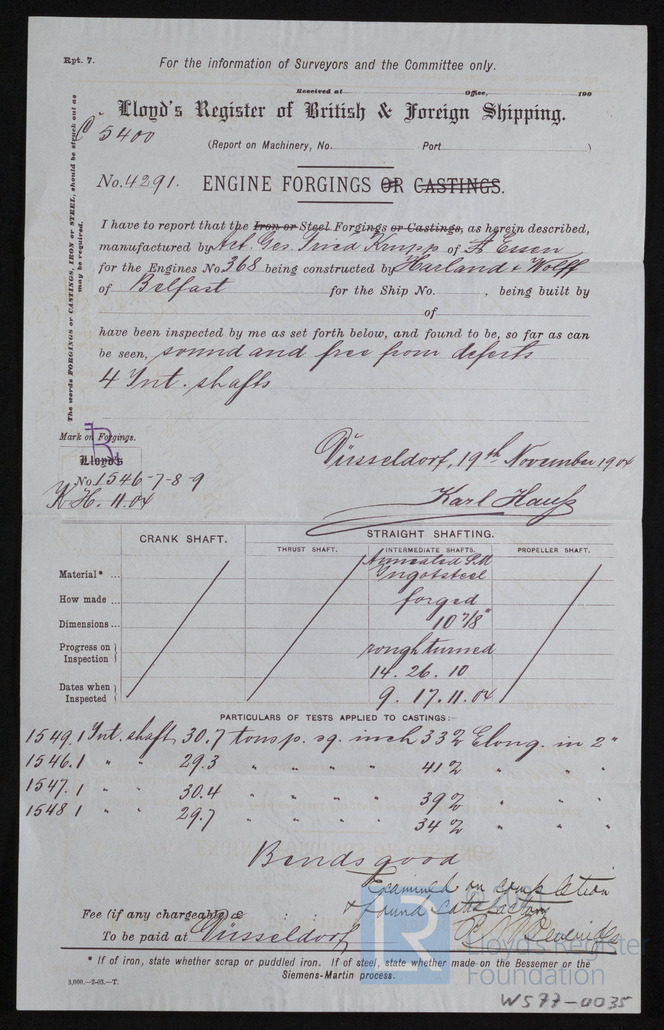 Rpt. 7.
For the information of Surveyors and the Committee only.
Received at Office, 190
Lloyd's Register of British & Foreign Shipping.
5400
(Report on Machinery, No. Port )
No. 4291. ENGINE FORGINGS OR CASTINGS.
The words FORGINGS or CASTINGS, IRON or STEEL, should be struck out as may be required.
I have to report that the Iron or Steel Forgings or Castings, as herein described,
manufactured by Act. Ges. Fried Krupp of A Essen
for the Engines No 368 being constructed by Harland & Wolff
of Belfast for the Ship No. , being built by
of
have been inspected by me as set forth below, and found to be, so far as can
be seen, sound and free from defects
4 Int. shafts
Mark on Forgings.
R
Lloyd's
No 1546-7-8-9
K H. 11.04
Düsseldorf, 19th November 1904
Karl Hauß
CRANK SHAFT. STRAIGHT SHAFTING.
THRUST SHAFT. INTERMEDIATE SHAFTS. PROPELLER SHAFT.
Material* ... Annealed S.M
Ingotsteel
How made ... forged
Dimensions ... 10 7/8"
Progress on Inspection rough turned
14. 26. 10
Dates when Inspected 9. 17. 11. 04
PARTICULARS OF TESTS APPLIED TO CASTINGS:—
1549.1 Int. shaft 30.7 tons p. sq. inch 33% Elong. in 2"
1546.1 " " 29.3 " " " " 41% " " "
1547.1 " " 30.4 " " " " 39% " " "
1548 1 " " 29.7 " " " " 34% " " "
Bends good
Examined on completion
& found satisfactory
Fee (if any chargeable) £ : :
To be paid at Düsseldorf
* If of iron, state whether scrap or puddled iron. If of steel, state whether made on the Bessemer or the
Siemens-Martin process.
3,000.—2-03.—T.
LR
Lloyd's Register
Foundation
W577-0035